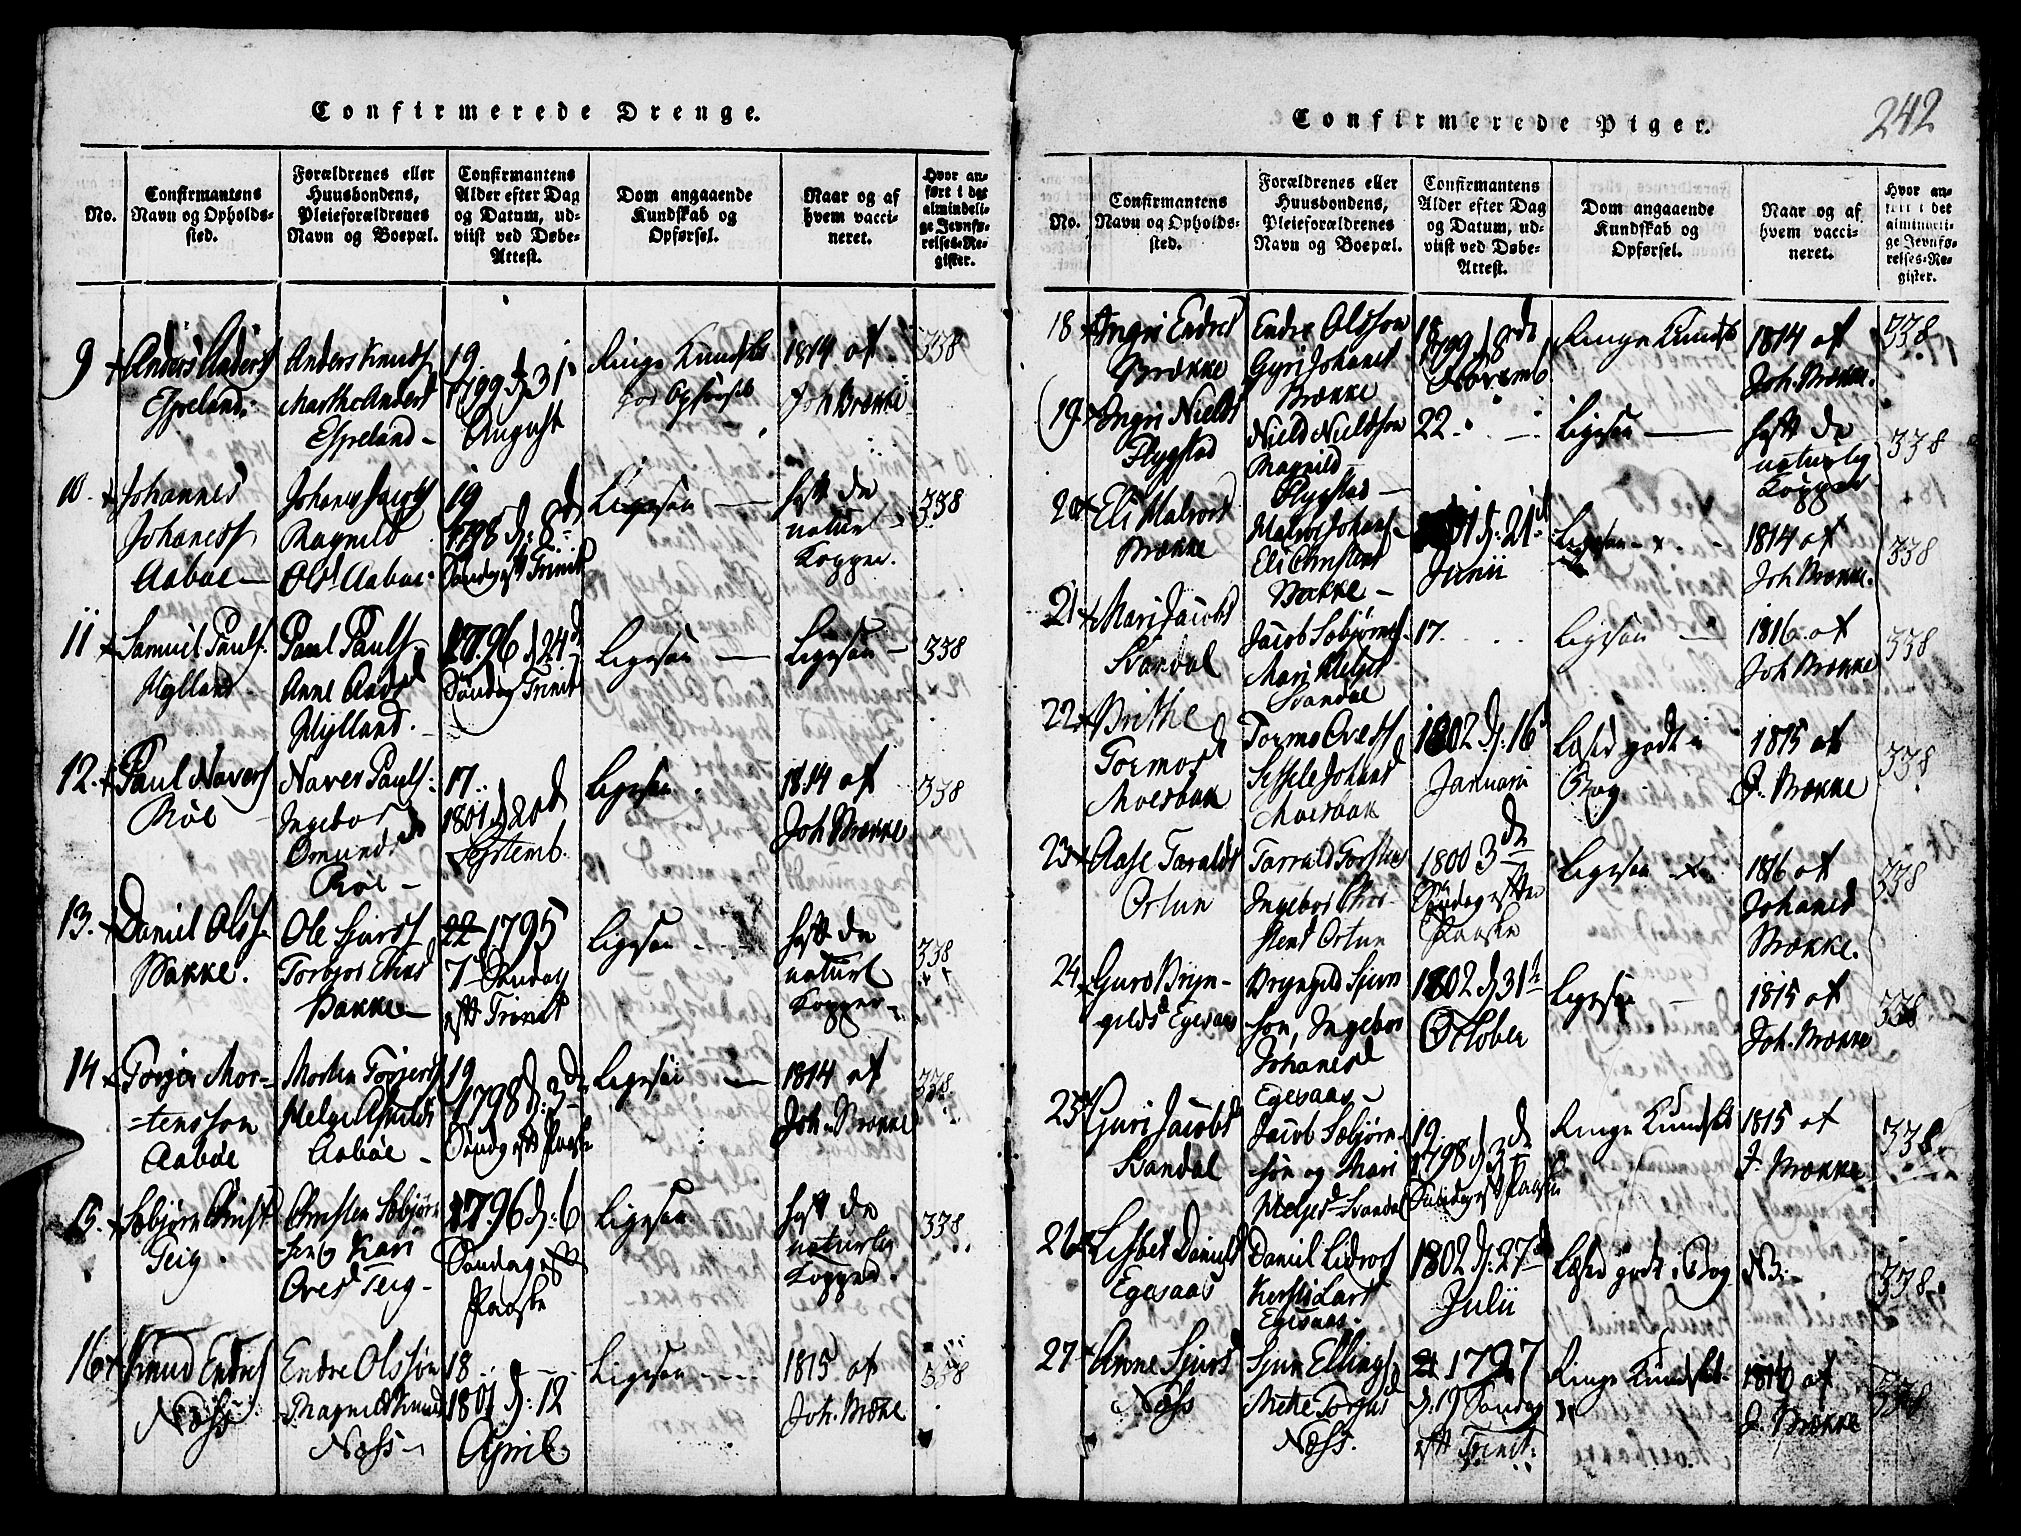 Confirmerede Drenge.
No.
Confirmantens
Navn og Opholds-
sted.
Forældrenes eller
Huusbondens,
Pleieforældrenes
Navn og Boepæl.
Confirmantens
Alder efter Dag
og Datum, ud-
viist ved Døbe-
Attest.
Dom angaaende
Kundskab og
Opførsel.
Naar og af
hvem vacci-
neret.
Hvor an-
ført i det
almindeli-
ge Jevnfø-
relses-Re-
gister.
9
Anders Anders
Espeland.
Anders Knuds
Marthe Anders
Espeland
19
1799 d 31
August
Ringe Kundsk
god Opførsel
1814 af
Joh Brække
338
10.
Johannes
Johaness
Aaboe
Johanes Jacobs
Ragnild
Olsd Aaboe.
19
1798 d: 8d
Søndag eft Trinit
Ligesaa
haft de
naturl
Kopper.
338
11
Samuel Pauls.
Hylland
Paul Pauls.
Anne Aads
Hylland.
1796 d 24d
Søndag Trinit
Ligesaa
Ligesaa
338
12.
Paul Navers
Røe
Naver Pauls:
Ingebor
Omunds
Røe
17
1801 d 20d
Septemb.
Ligesaa.
1814 af
Joh Brække
338
13.
Daniel Olss
Bakke.
Ole Sjurss
Torbjor Elias
Bakke
22 1795
7d Søndag
eft Trinit
Ligesaa
haft de
naturl
Kopper
338
14
Torjer Mor-
=tensson
Aabøe
Morten Torjers
Helge Asuilds
Aabøe
19
1798 d: 3d
Søndag eft Paaske
Ligesaa
1814 af
Joh. Brække
338
15.
Sæbjørn Christ
Teig.
Christen Sæbjørn
sen og Kari
Oves Teig
1796 d: 6
Søndag eft
Paaske
Ligesaa
haft de
naturlig
Kopper.
338
16
Knud Endres
Næss
Endre Olssøn
Magnild Knud
Næss
18
1801 d: 12
April
Ligesaa
1815 af
Joh. Brække
338
Confirmerede Piger.
242
No.
Confirmantens
Navn og Opholds-
sted.
Forældrenes eller
Huusbondens,
Pleieforældrenes
Navn og Boepæl.
Confirmantens
Alder efter Dag
og Datum, ud-
viist ved Døbe-
Attest.
Dom angaaende
Kundskab og
Opførsel.
Naar og af
hvem vacci-
neret.
Hvor an-
ført i det
almindeli-
ge Jevnfø-
relses-Re-
gister.
18
Ingri Endres
Brække
Endre Olsson
Gyri Johanes
Brække
18
1799 18de
Novemb
Ringe Kundsk
1814 af
Joh. Brække.
338
19
Ingri Niels
Flygstad
Niels Nielsson
Magnild
Flygstad
22
Ligesaa
haft de
naturlig
Kopper
338
20
Eli Halvors
Brække
Halvor Johans
Eli Christens
Brække
1801 d: 21d
Junii
Ligesaa
1814 af
Joh Brække.
338
21
Mari Jacobs
Svandal
Jacob Sæbjørns
Mari Helges
Svandal
17
Ligesaa
1816 af
Joh Brække
338
22
Brithe
Tormos
Moesbak
Tormo Ovess
Sissele Johans
Moesbak
1802 d: 16d
Januari
Læser godt i
Bog
1815 af
J. Brække
338
23
Aase Taralds
Ortun
Tarrald Torstens
Ingebor Chris-
tens Ortun
1800 3de
Søndag efter
Paaske
Ligesaa
1816 af
Johanes
Brække.
338
24
Guro Bryn-
gilds Egesaas
Bryngild Sjurs
søn, Ingebor
Johanes
Egesaas
1802 d 31te
October
Ligesaa
1815 af
Joh. Brække
338
25
Guri Jacobs
Svandal
Jacob Sæbjørn-
søn og Mari
Helges Svandal
19
1798 d 3de
Søndag eft Paaske
Ringe Kundsk
1815 af
J. Brække
338
26
Lisbet Daniels
Egesaas
Daniel Lidvors
Kersti Lars
Egesaas.
1802 d: 27de
Julii
Læser godt i Bog
NB.
338
27
Anne Sjurs
Næss
Sjur Ellings
Mette Torjus
Næss.
21 1797
d. 19 Søndag
eft Trinit:
Ringe Kundsk
1814 af
J. Brække
338